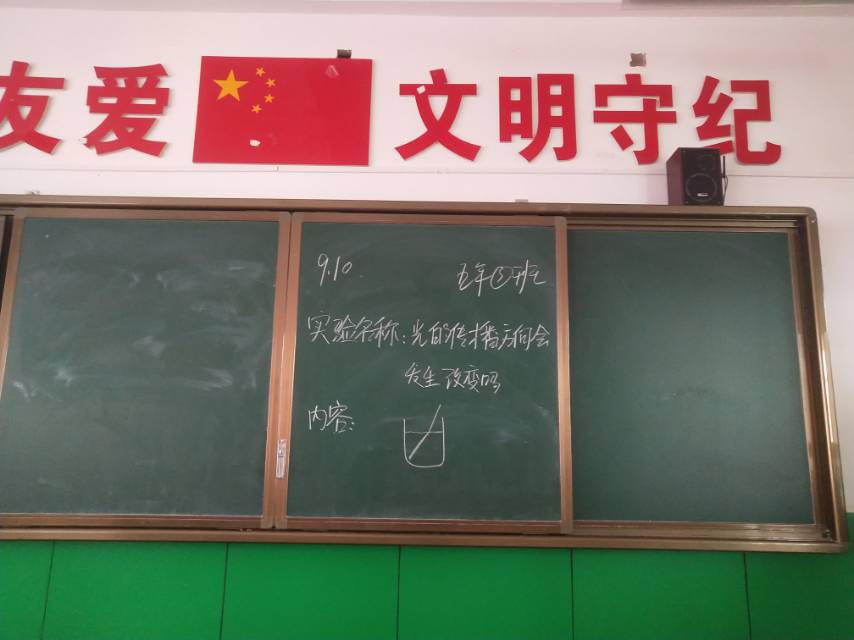 友爱 文明守纪
9.10. 五年③班
实验名称:光的传播方向会
发生改变吗
内容: